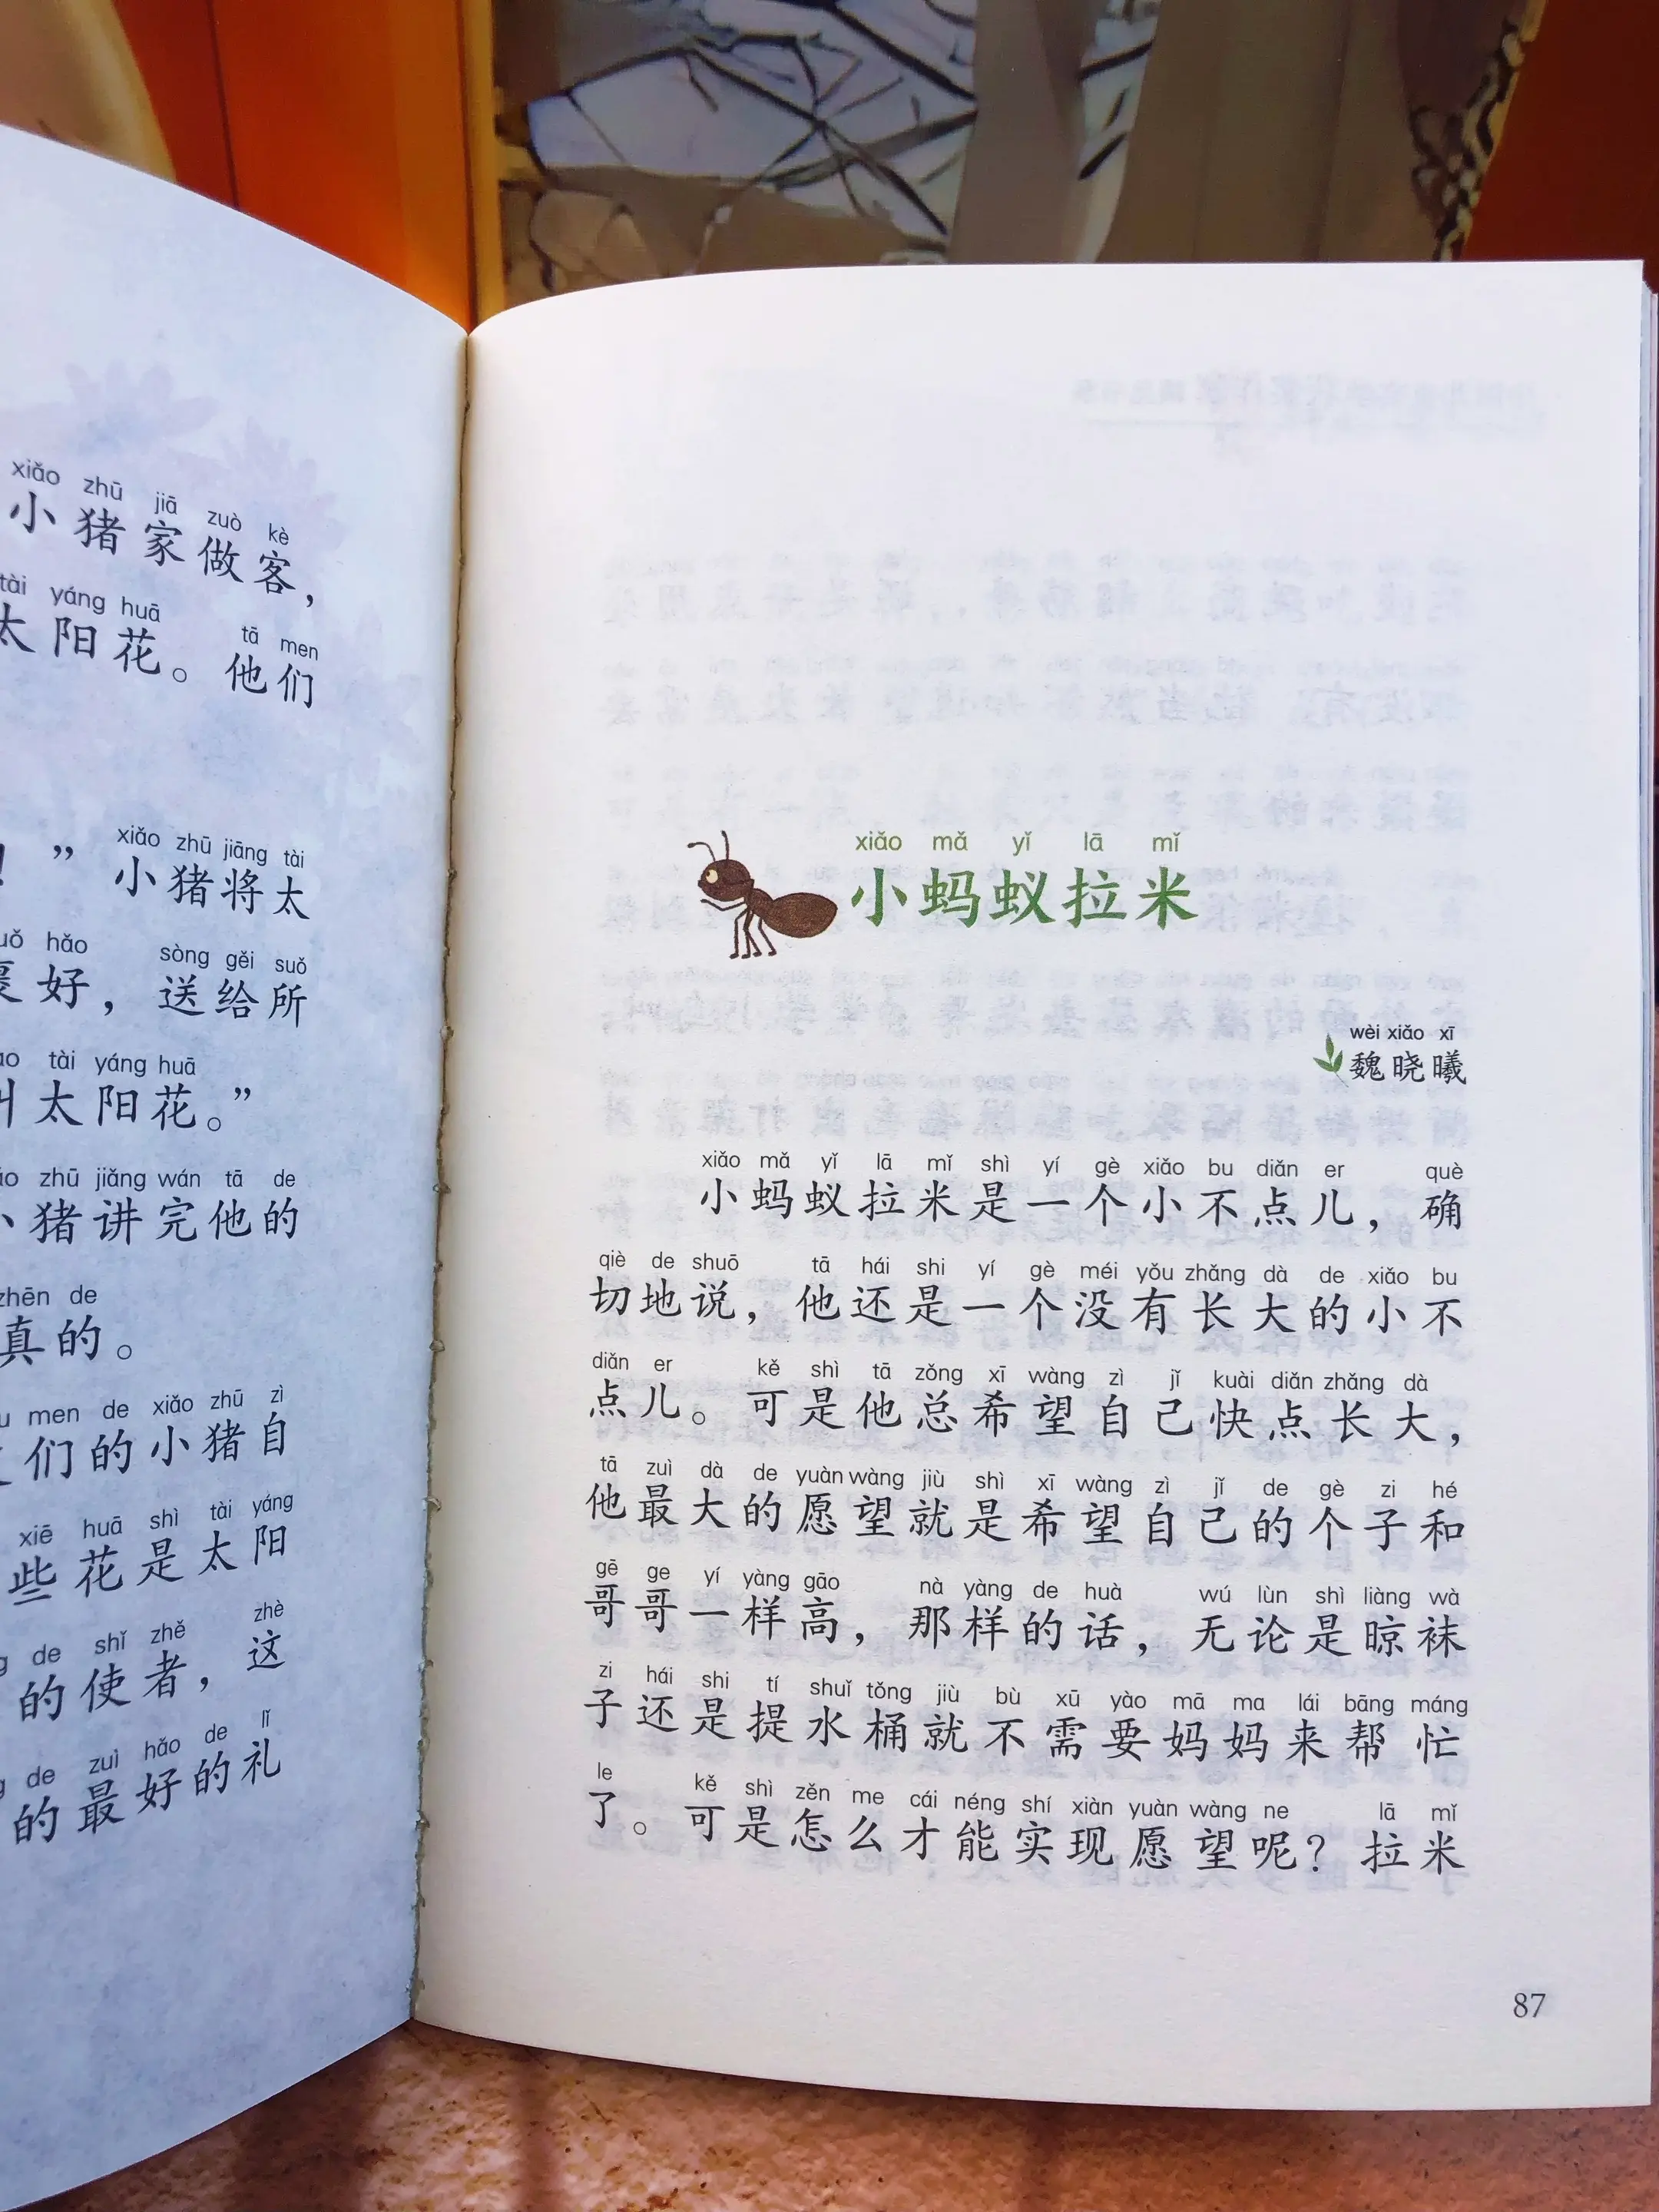 xiǎo zhū jiā zuò kè
小猪家做客，
tài yáng huā tā men
太阳花。他们
xiǎo zhū jiāng tài
！” 小猪将太
hǎo sòng gěi suǒ
好，送给所
tài yáng huā
叫太阳花。”
zhū jiǎng wán tā de
小猪讲完他的
zhēn de
真的。
men de xiǎo zhū zì
们的小猪自
xiē huā shì tài yáng
些花是太阳
de shǐ zhě zhè
的使者，这
de zuì hǎo de lǐ
的最好的礼
xiǎo mǎ yǐ lā mǐ
小蚂蚁拉米
wèi xiǎo xī
魏晓曦
xiǎo mǎ yǐ lā mǐ shì yí gè xiǎo bu diǎn er què
小蚂蚁拉米是一个小不点儿，确
qiè de shuō tā hái shi yí gè méi yǒu zhǎng dà de xiǎo bu
切地说，他还是一个没有长大的小不
diǎn er kě shì tā zǒng xī wàng zì jǐ kuài diǎn zhǎng dà
点儿。可是他总希望自己快点长大，
tā zuì dà de yuàn wàng jiù shì xī wàng zì jǐ de gè zi hé
他最大的愿望就是希望自己的个子和
gē ge yí yàng gāo nà yàng de huà wú lùn shì liàng wà
哥哥一样高，那样的话，无论是晾袜
zi hái shi tí shuǐ tǒng jiù bù xū yào mā ma lái bāng máng
子还是提水桶就不需要妈妈来帮忙
le kě shì zěn me cái néng shí xiàn yuàn wàng ne lā mǐ
了。可是怎么才能实现愿望呢？拉米
87